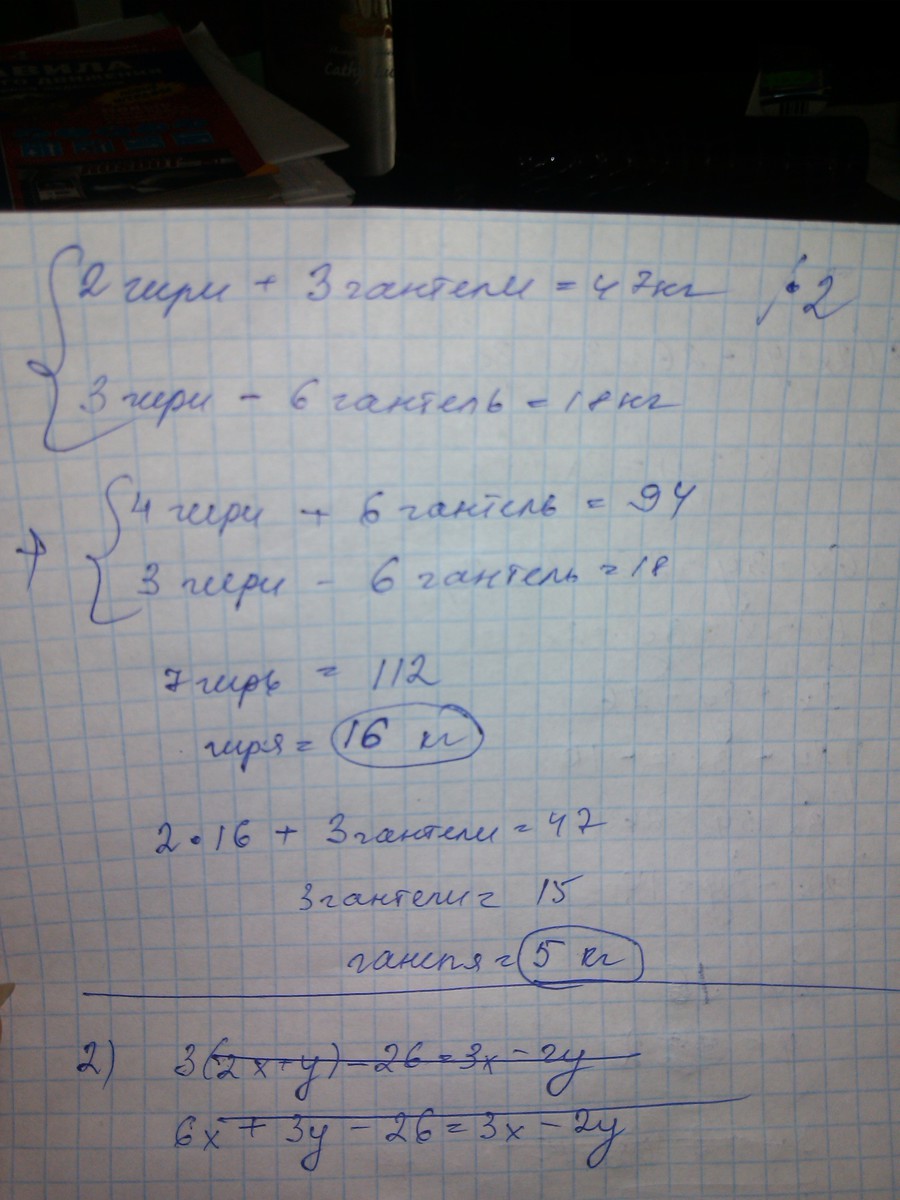 АВИЛА
Cath
2 гири + 3 гантели = 47 кг | • 2
3 гири - 6 гантель = 18 кг
+ 4 гири + 6 гантель = 94
3 гири - 6 гантель = 18
7 гирь = 112
гиря = 16 кг
2 • 16 + 3 гантели = 47
3 гантели = 15
= 5 кг
2) 3(2x+y) - 26 = 3x - 2y
6x + 3y - 26 = 3x - 2y